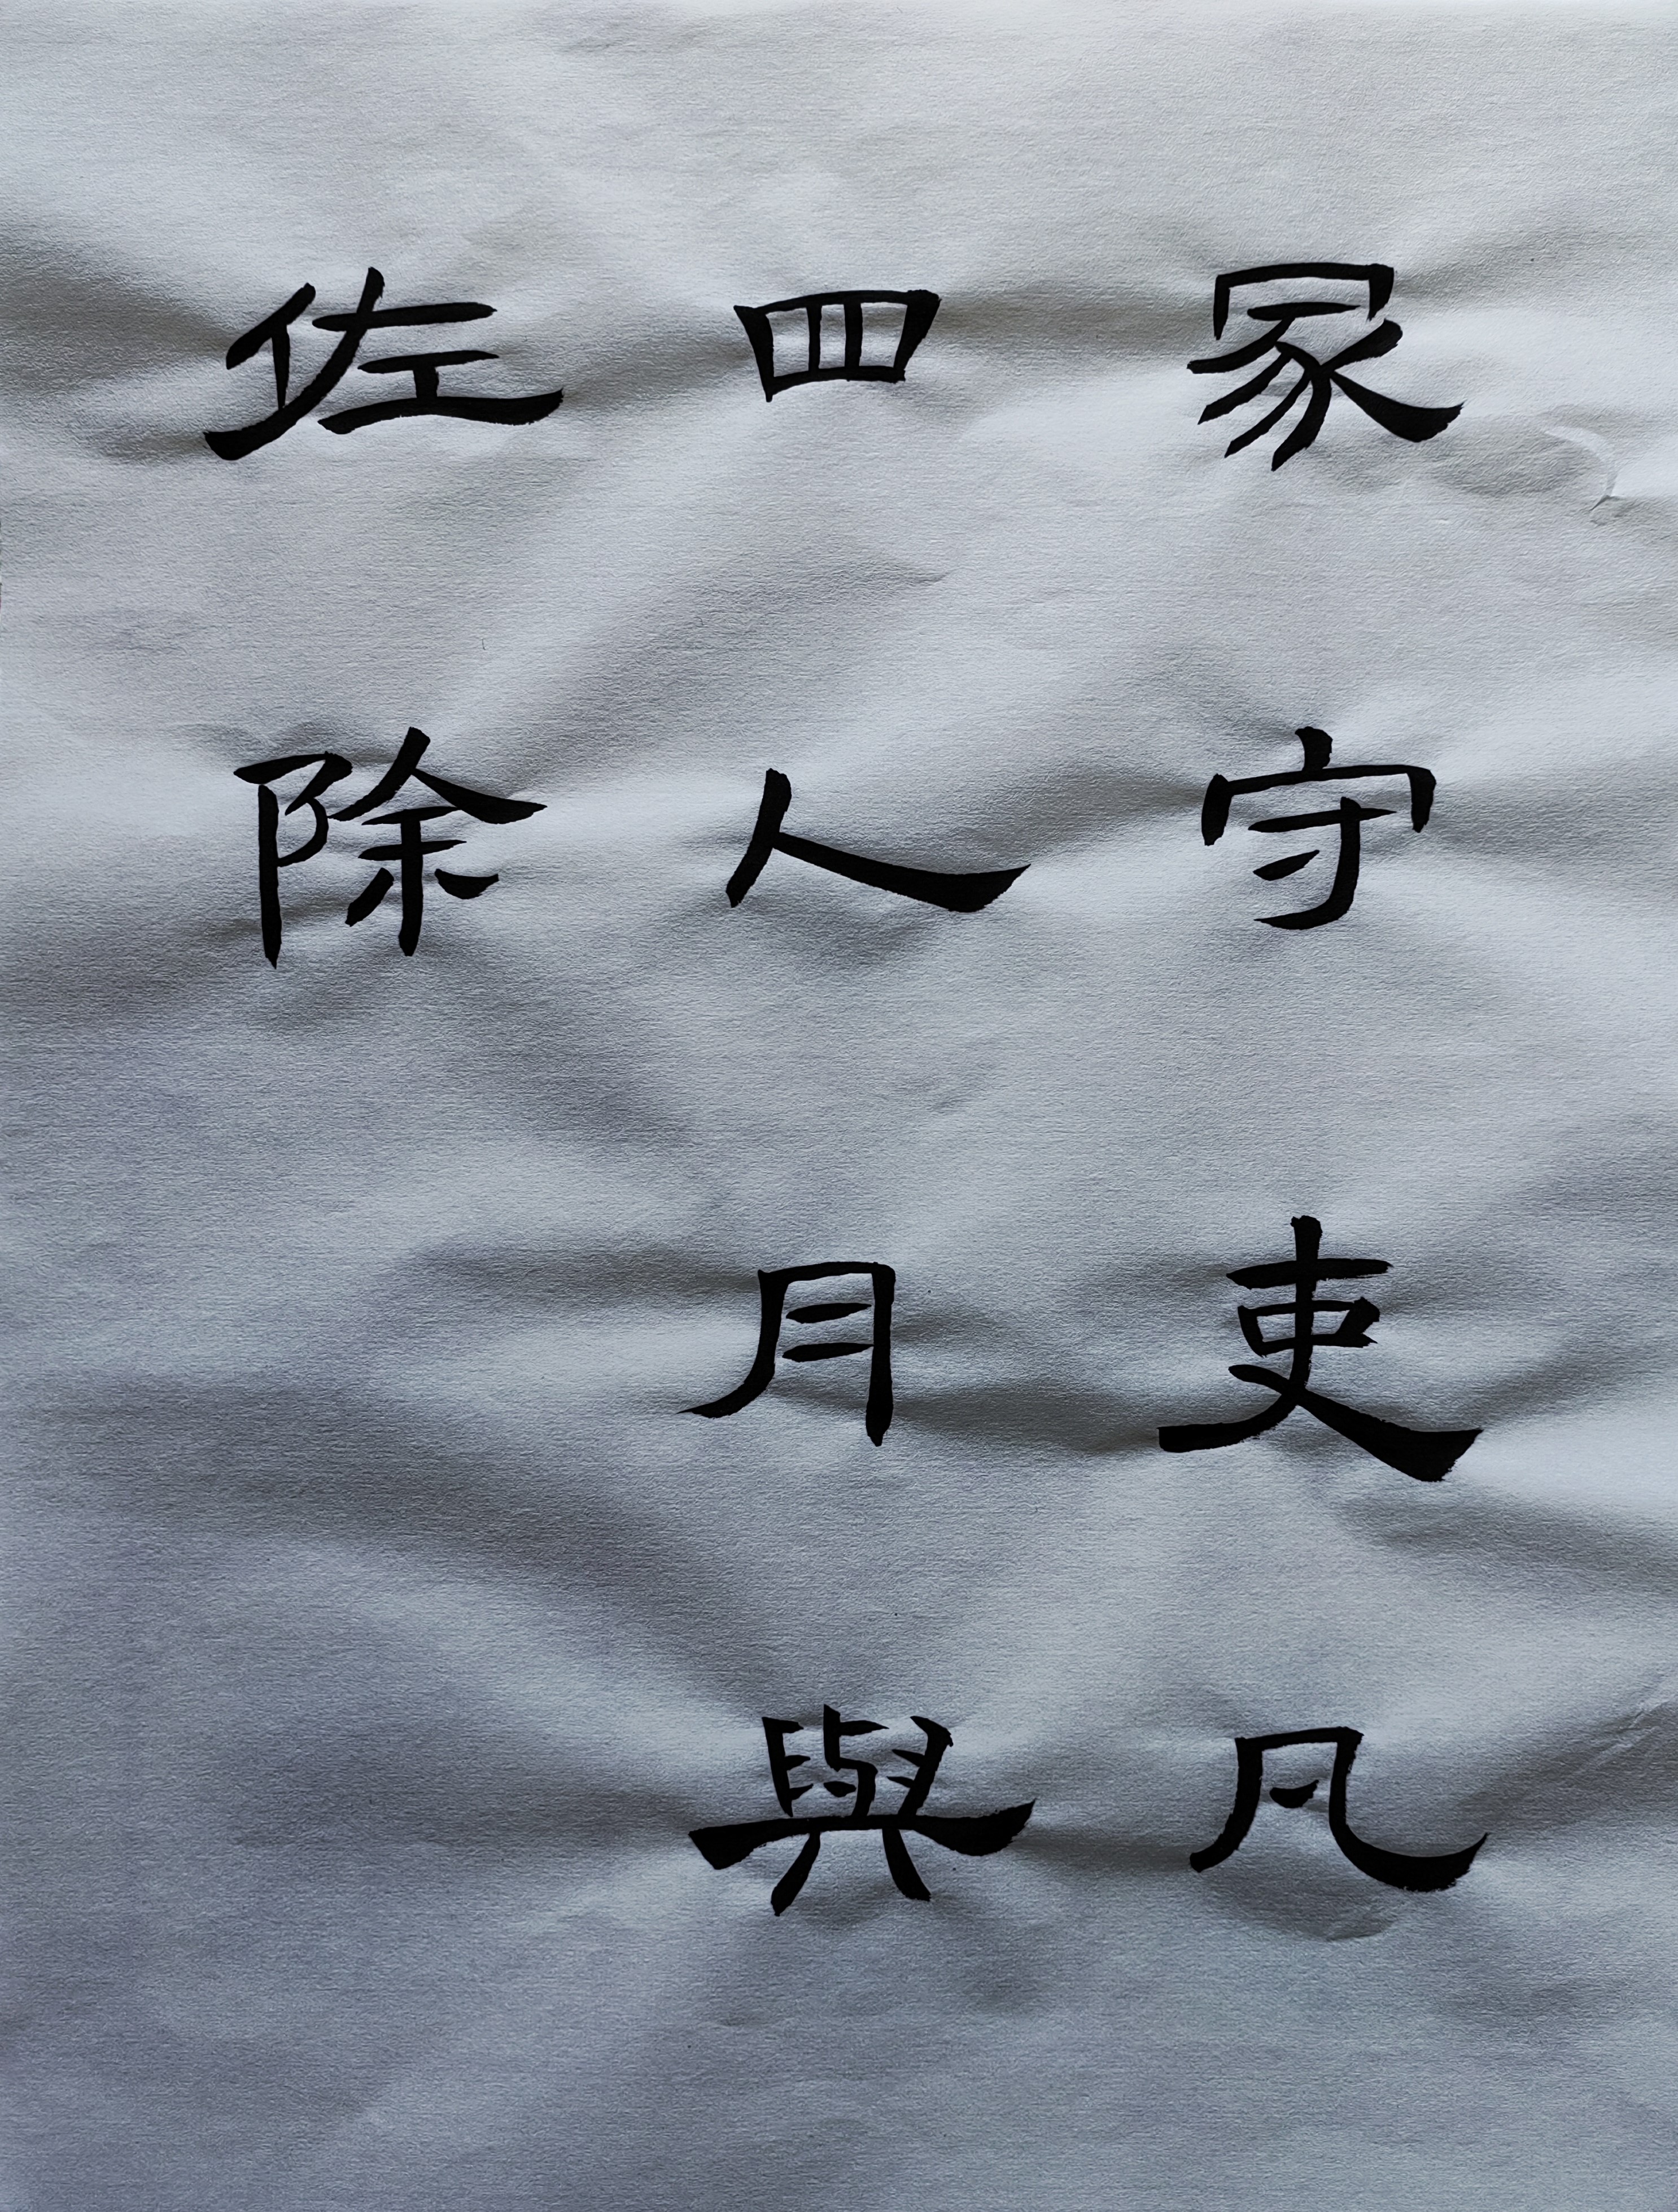 冢守吏凡
四人月與
佐除